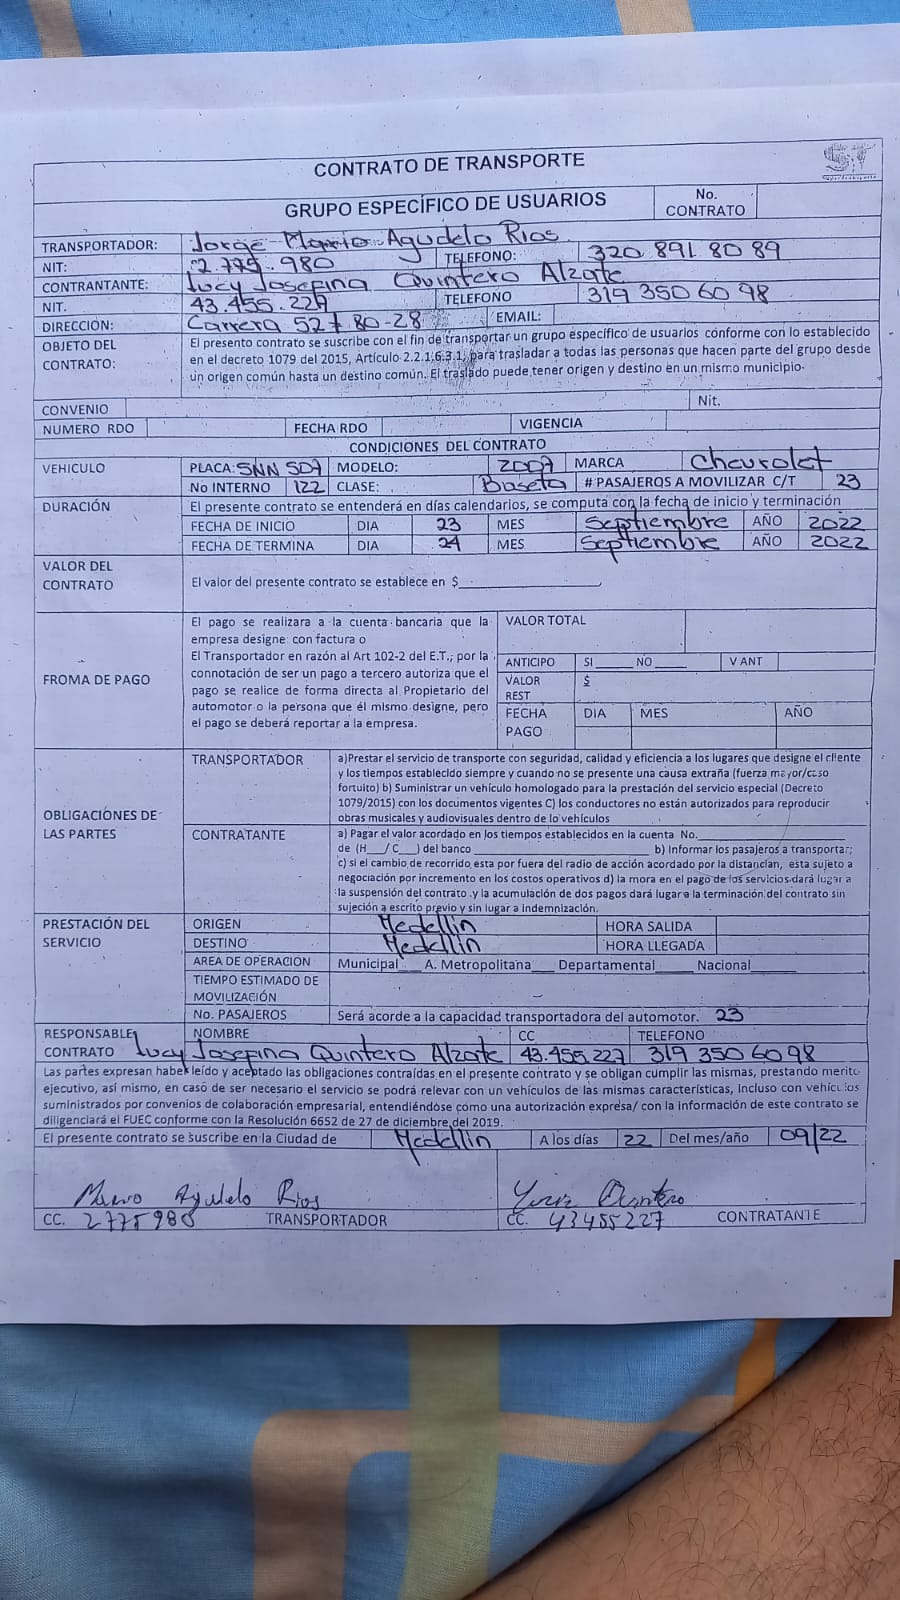 CONTRATO DE TRANSPORTE
GRUPO ESPECÍFICO DE USUARIOS No. CONTRATO
TRANSPORTADOR: Jorge Mario Agudelo Rios
NIT: 2.775.980 TELEFONO: 320 891 80 89
CONTRANTANTE: Lucy Josefina Quintero Alzate
NIT. 43.455.227 TELEFONO 319 350 60 98
DIRECCIÓN: Carrera 527 80-28 EMAIL:
OBJETO DEL CONTRATO: El presento contrato se suscribe con el fin de transportar un grupo específico de usuarios conforme con lo establecido
en el decreto 1079 del 2015, Artículo 2.2.1.6.3.1, para trasladar a todas las personas que hacen parte del grupo desde
un origen común hasta un destino común. El traslado puede tener origen y destino en un mismo municipio.
CONVENIO Nit.
NUMERO RDO FECHA RDO VIGENCIA
CONDICIONES DEL CONTRATO
VEHICULO PLACA: SNN 507 MODELO: 2007 MARCA Chevrolet
No INTERNO 122 CLASE: Buseta # PASAJEROS A MOVILIZAR C/T 23
DURACIÓN El presente contrato se entenderá en días calendarios, se computa con la fecha de inicio y terminación
FECHA DE INICIO DIA 23 MES Septiembre AÑO 2022
FECHA DE TERMINA DIA 24 MES Septiembre AÑO 2022
VALOR DEL CONTRATO El valor del presente contrato se establece en $
FROMA DE PAGO
El pago se realizara a la cuenta bancaria que la
empresa designe con factura o
El Transportador en razón al Art 102-2 del E.T.; por la
connotación de ser un pago a tercero autoriza que el
pago se realice de forma directa al Propietario del
automotor o la persona que él mismo designe, pero
el pago se deberá reportar a la empresa.
VALOR TOTAL
ANTICIPO SI NO V ANT
VALOR REST $
FECHA PAGO DIA MES AÑO
OBLIGACIÓNES DE LAS PARTES
TRANSPORTADOR a)Prestar el servicio de transporte con seguridad, calidad y eficiencia a los lugares que designe el cliente
y los tiempos establecido siempre y cuando no se presente una causa extraña (fuerza mayor/caso
fortuito) b) Suministrar un vehículo homologado para la prestación del servicio especial (Decreto
1079/2015) con los documentos vigentes C) los conductores no están autorizados para reproducir
obras musicales y audiovisuales dentro de lo vehículos
CONTRATANTE a) Pagar el valor acordado en los tiempos establecidos en la cuenta No.
de (H___/C___) del banco b) Informar los pasajeros a transportar;
c) si el cambio de recorrido esta por fuera del radio de acción acordado por la distancian, esta sujeto a
negociación por incremento en los costos operativos d) la mora en el pago de los servicios dará lugar a
la suspensión del contrato y la acumulación de dos pagos dará lugar a la terminación del contrato sin
sujeción a escrito previo y sin lugar a indemnización.
PRESTACIÓN DEL SERVICIO
ORIGEN Medellin HORA SALIDA
DESTINO Medellin HORA LLEGADA
AREA DE OPERACION Municipal___ A. Metropolitana___ Departamental____ Nacional____
TIEMPO ESTIMADO DE MOVILIZACIÓN
No. PASAJEROS Será acorde a la capacidad transportadora del automotor. 23
RESPONSABLE NOMBRE CC TELEFONO
CONTRATO Lucy Josefina Quintero Alzate 43.455.227 319 350 60 98
Las partes expresan haber leído y aceptado las obligaciones contraídas en el presente contrato y se obligan cumplir las mismas, prestando merito
ejecutivo, así mismo, en casó de ser necesario el servicio se podrá relevar con un vehículos de las mismas características, incluso con vehículos
suministrados por convenios de colaboración empresarial, entendiéndose como una autorización expresa/ con la información de este contrato se
diligenciará el FUEC conforme con la Resolución 6652 de 27 de diciembre del 2019.
El presente contrato se suscribe en la Ciudad de Medellin A los días 22 Del mes/año 09/22
Mario Agudelo Rios Quintero
CC. 2775980 TRANSPORTADOR CC. 43455227 CONTRATANTE